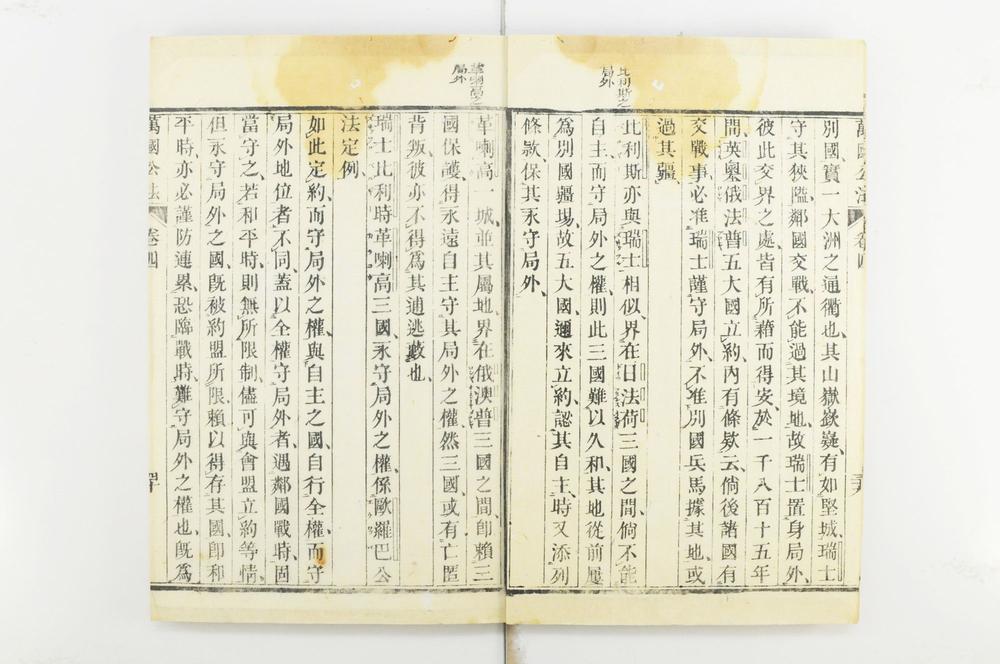 萬國公法
卷四
別國、實一大洲之通衢也、其山嶽嶔嶷、有如堅城、瑞士
守其狹隘、鄰國交戰、不能過其境地、故瑞士置身局外、
彼此交界之處、皆有所藉而得安、於一千八百十五年
間、英奧俄法普五大國立約、內有條欵云、倘後諸國有
交戰事、必准瑞士謹守局外、不准別國兵馬據其地、或
過其疆、
比利斯之局外
比利斯亦與瑞士相似、界在日法荷三國之間、倘不能
自主、而守局外之權、則此三國難以久和、其地從前屢
為別國疆場、故五大國、邇來立約、認其自主、時又添列
條欵、保其永守局外、
革喇高之局外
革喇高一城、並其屬地、界在俄澳普三國之間、即賴三
國保護、得永遠自主、守其局外之權、然三國或有亡匿
背叛、彼亦不得為其逋逃藪也、
瑞士比利時革喇高三國、永守局外之權、係歐羅巴公
法定例、
如此定約、而守局外之權、與自主之國、自行全權、而守
局外地位者不同、蓋以全權守局外者、遇鄰國戰時、固
當守之、若和平時、則無所限制、儘可與會盟立約等情、
但永守局外之國、旣被約盟所限、賴以得存其國、即和
平時、亦必謹防連累、恐臨戰時、難守局外之權也、旣為
萬國公法
卷四